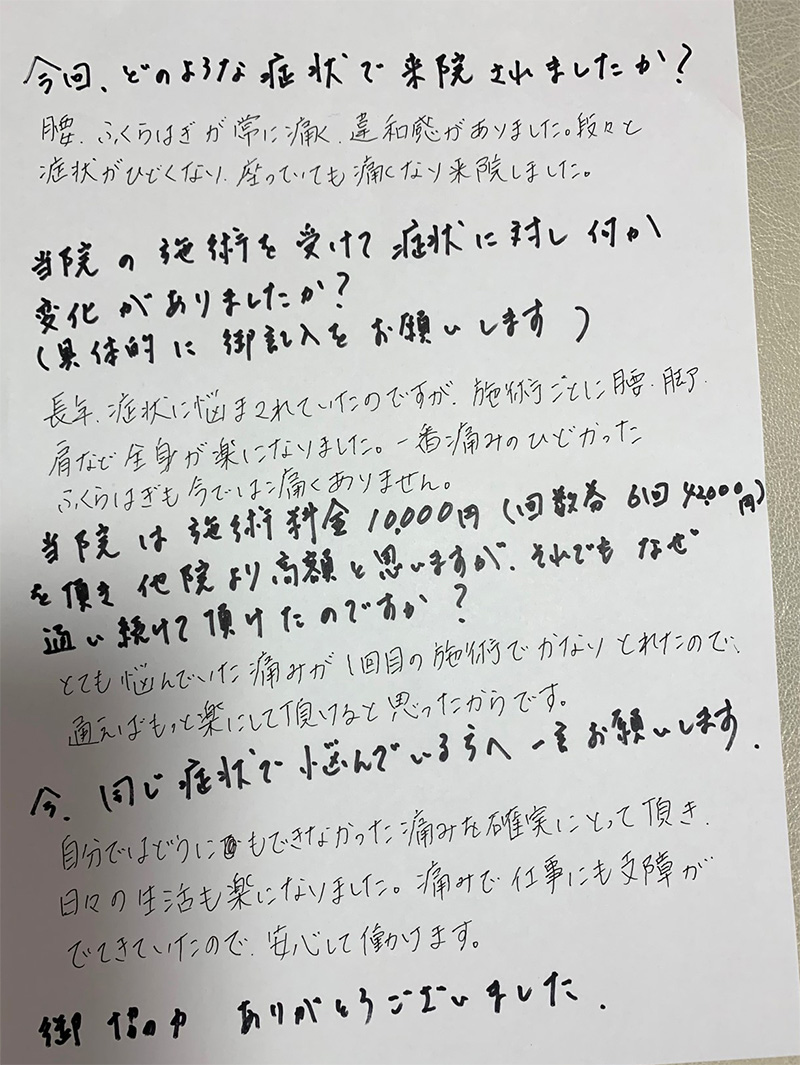 今回、どのような症状で来院されましたか？
腰、ふくらはぎが常に痛く、違和感がありました。段々と
症状がひどくなり、座っていても痛くなり来院しました。
当院の施術を受けて症状に対し何か
変化がありましたか？
（具体的に御記入をお願いします）
長年、症状に悩まされていたのですが、施術ごとに腰、脚、
肩など全身が楽になりました。一番痛みのひどかった
ふくらはぎも今では痛くありません。
当院は施術料金10,000円（回数券6回42,000円）
を頂き他院より高額と思いますが、それでもなぜ
通い続けて頂けたのですか？
とても悩んでいた痛みが1回目の施術でかなりとれたので、
通えばもっと楽にして頂けると思ったからです。
今、同じ症状で悩んでいる方へ一言お願いします.
自分ではどうにもできなかった痛みを確実にとって頂き、
日々の生活も楽になりました。痛みで仕事にも支障が
でてきていたので、安心して働けます。
御協力 ありがとうございました.